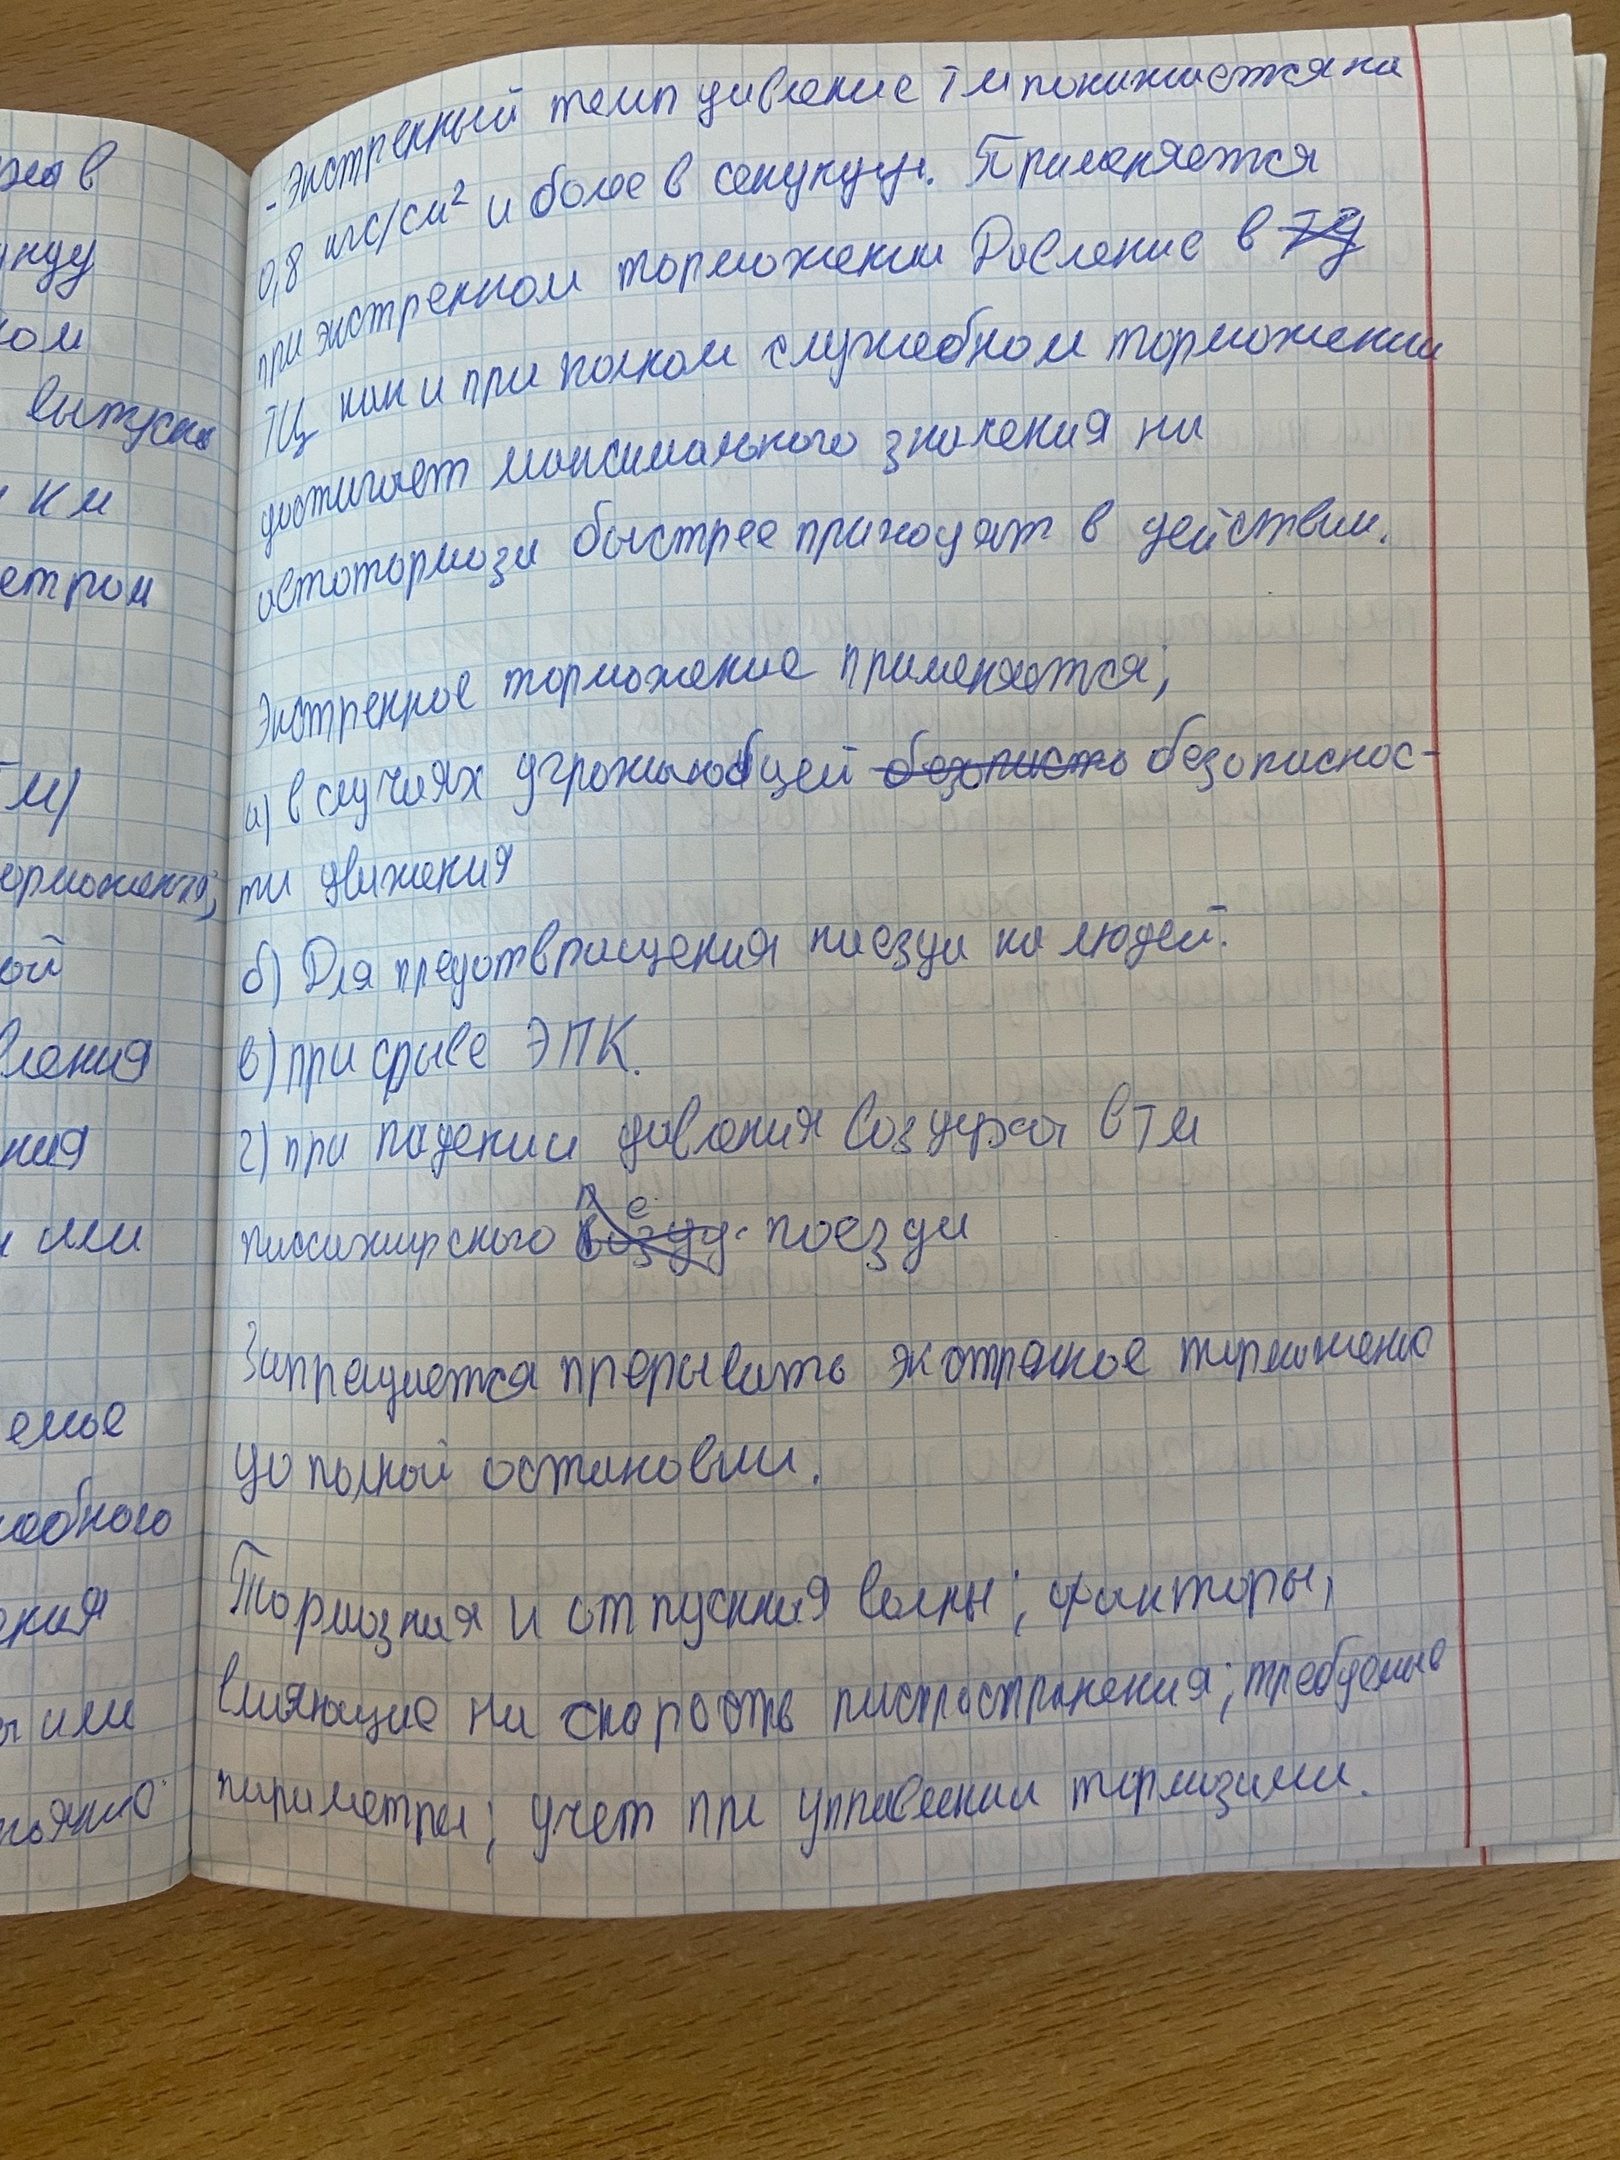 ом
выпуска
КМ
етром
ой
вления
ния
или
емое
ения
или
- Экстренный темп давление ТМ понижается на
0,8 кгс/см² и более в секунду. Применяется
при экстренном торможении Давление в
ТЦ как и при полном служебном торможении
достигает максимального значения на
автотормоза быстрее приходят в действии.
Экстренное торможение применяется;
а) в случаях угрожающей безопаснос-
ти движения
б) Для предотвращения наезда на людей.
в) при срыве ЭПК.
г) при падении давления воздуха в ТМ
пассажирского поезда
Запрещается прерывать экстренное торможение
до полной остановки.
Тормозная и отпускная волны; факторы,
влияющие на скорость распространения; требуемые
параметры; учет при управлении тормозами.